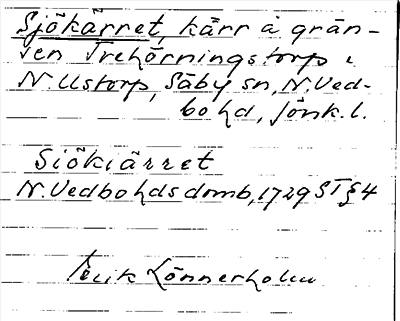 Sjökärret, kärr å grän-
sen Trehörningstorp i
N. Ustorp, Säby sn, N. Ved-
bo hd, Jönk. l.
Siökiärret
N. Vedbo hds domb, 1729 ST § 4
Erik Lönnerholm